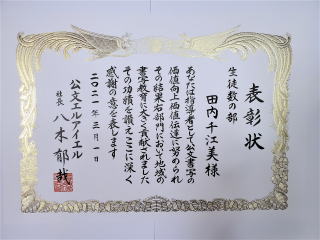 表彰状
生徒数の部
田内千江美様
あなたは指導者として公文書写の
価値向上価値伝達に努められ
その結果右部門において地域の
書写教育に大きく貢献されました
その功績を讃えここに深く
感謝の意を表します
二〇二一年三月一日
公文エルアイエル
社長 八木郁哉